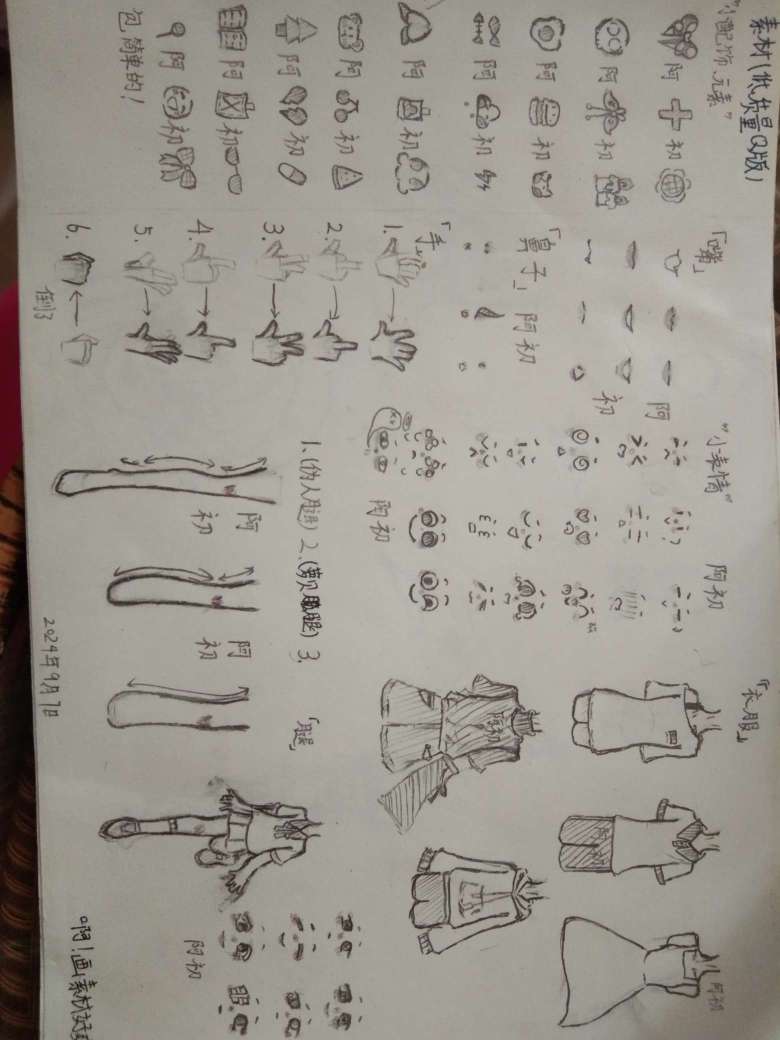 素材(低质量Q版)
"小配饰元素"
阿初
阿初
阿初
阿初
阿初
阿初
阿初
阿初
阿初
包简单的!
「嘴」
阿初
「鼻子」
阿初
「手」
1.
2.
3.
4.
5.
6.
倒了
"小表情"
阿初
阿初
1.(伪人腿) 2.(萝贝腿) 3.
「腿」
阿初
阿初
「衣服」
阿初
阿初
阿初
2024年9月7日
啊!画素材好